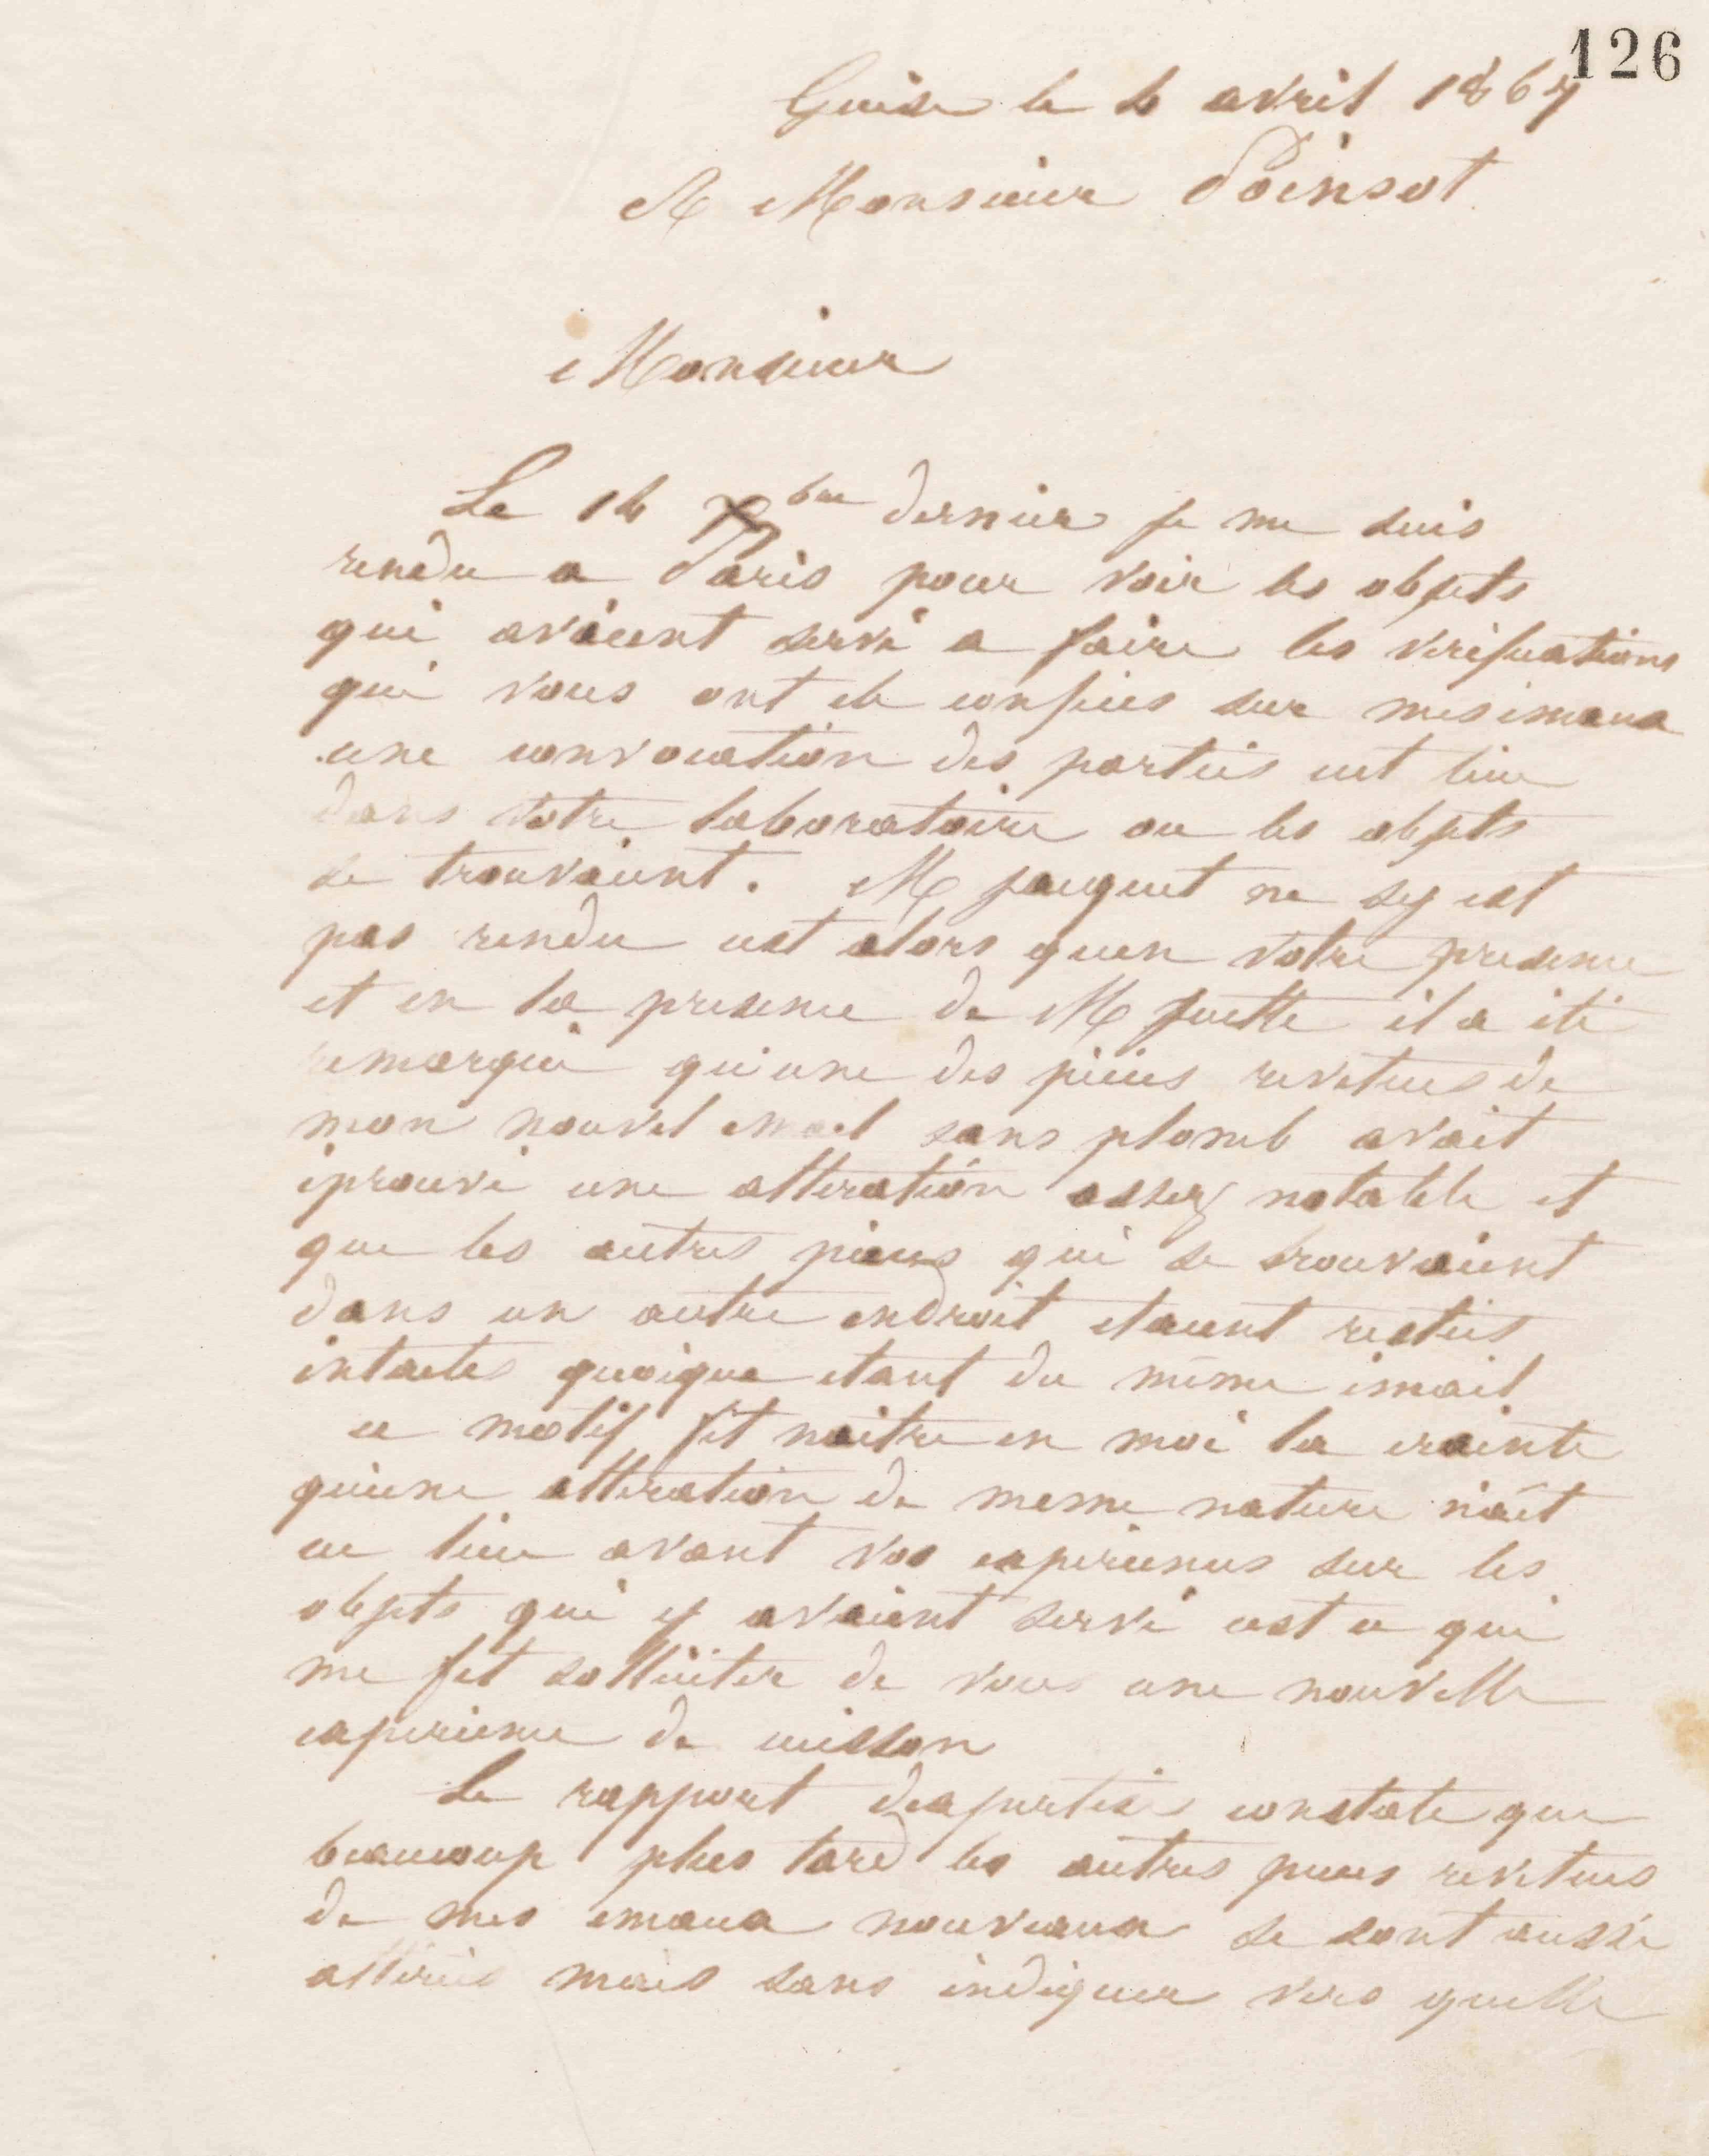 126
Guise le 4 avril 1867
A Monsieur Poinsot
Monsieur
Le 14 Xbre dernier je me suis
rendu a Paris pour voir les objets
qui avaient servi a faire les verifications
qui vous ont ete confiées sur mes émaux
une convocation des parties eut lieu
dans votre laboratoire ou les objets
se trouvaient. M Jacquet ne sy est
pas rendu cest alors quen votre presence
et en la presence de M Juette il a été
remarqué qu'une des pièces revetues de
mon nouvel email sans plomb avait
éprouvé une altération assez notable et
que les autres pièces qui se trouvaient
dans un autre endroit etaient restées
intactes quoique etant du même émail
ce motif fit naitre en moi la crainte
qu'une alteration de meme nature n'ait
eu lieu avant vos experiences sur les
objets qui y avaient servi cest ce qui
me fit solliciter de vous une nouvelle
experience de cuisson
Le rapport dexpertise constate que
beaucoup plus tard les autres pieces revetues
de mes emaux nouveaux se sont aussi
altérées mais sans indiquer vers quelle